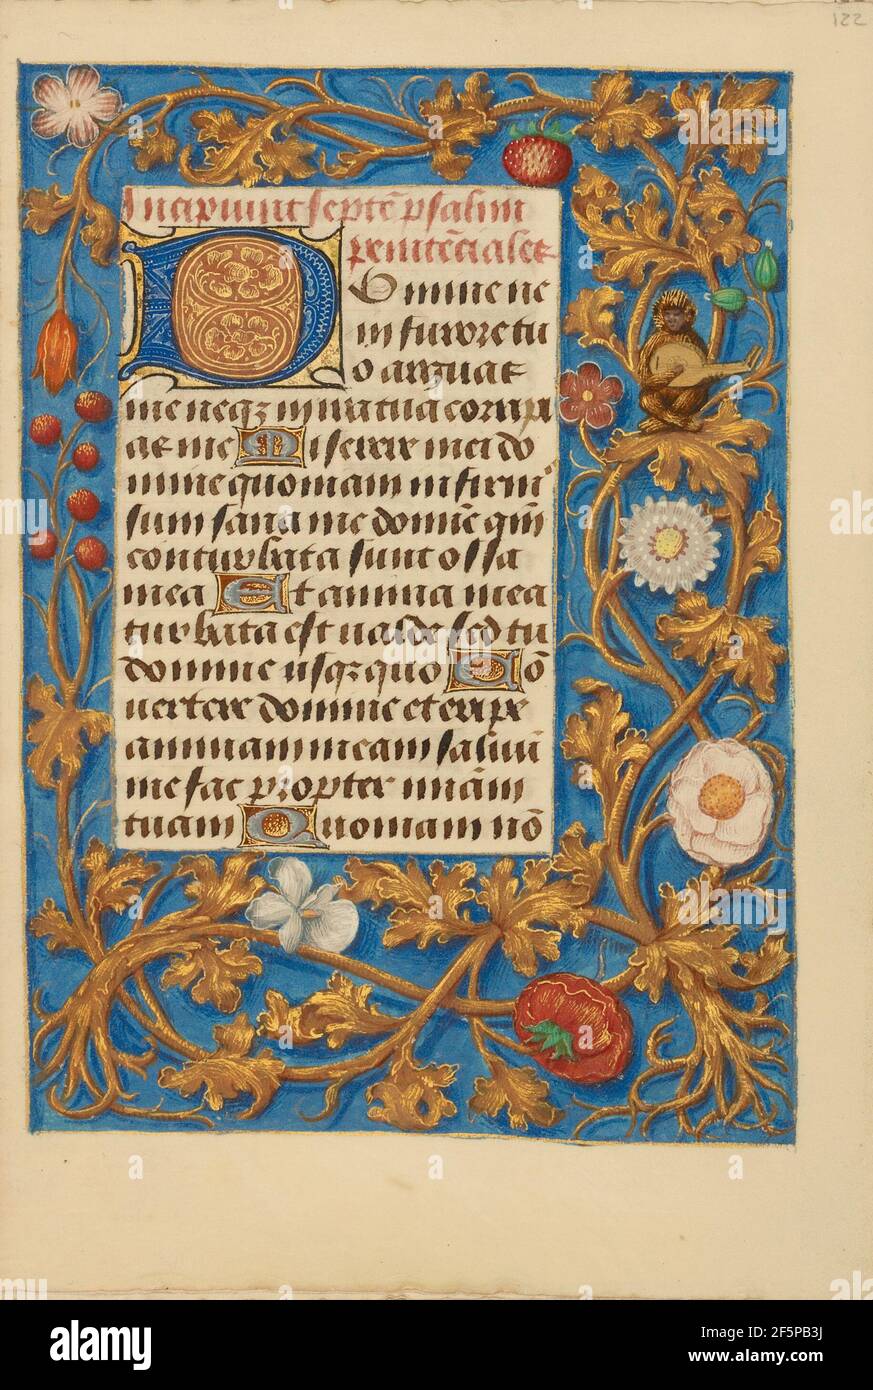 122
Incipiunt septē psalmi
penitēciales et
Domine ne
in furore tu
o arguas
me neqz in ira tua corripi
as me Miserere mei do
mine quoniam infirm
sum sana me domīe qm̄
conturbata sunt ossa
mea Et anima mea
turbata est ualde sed tu
domine usqz quo Cō
uertere domine et eripe
animam meam saluū
me fac propter miām
tuam Quoniam nō
alamy
Image ID: 2F5PB3J
www.alamy.com